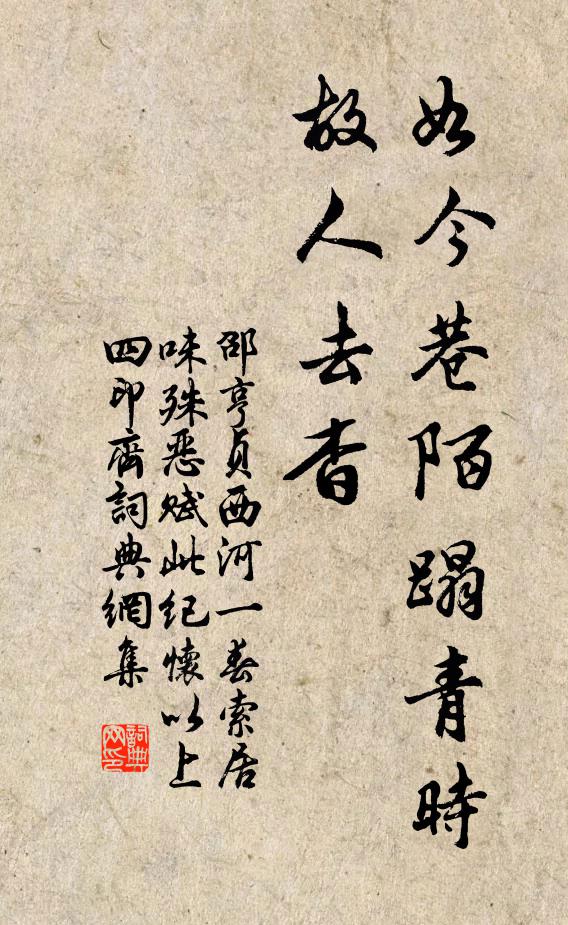 如今巷陌蹋青時
故人去杳
邵亨貞西河一春索居
味殊惡賦此紀懷以上
四印齋詞典網集
詞典網印